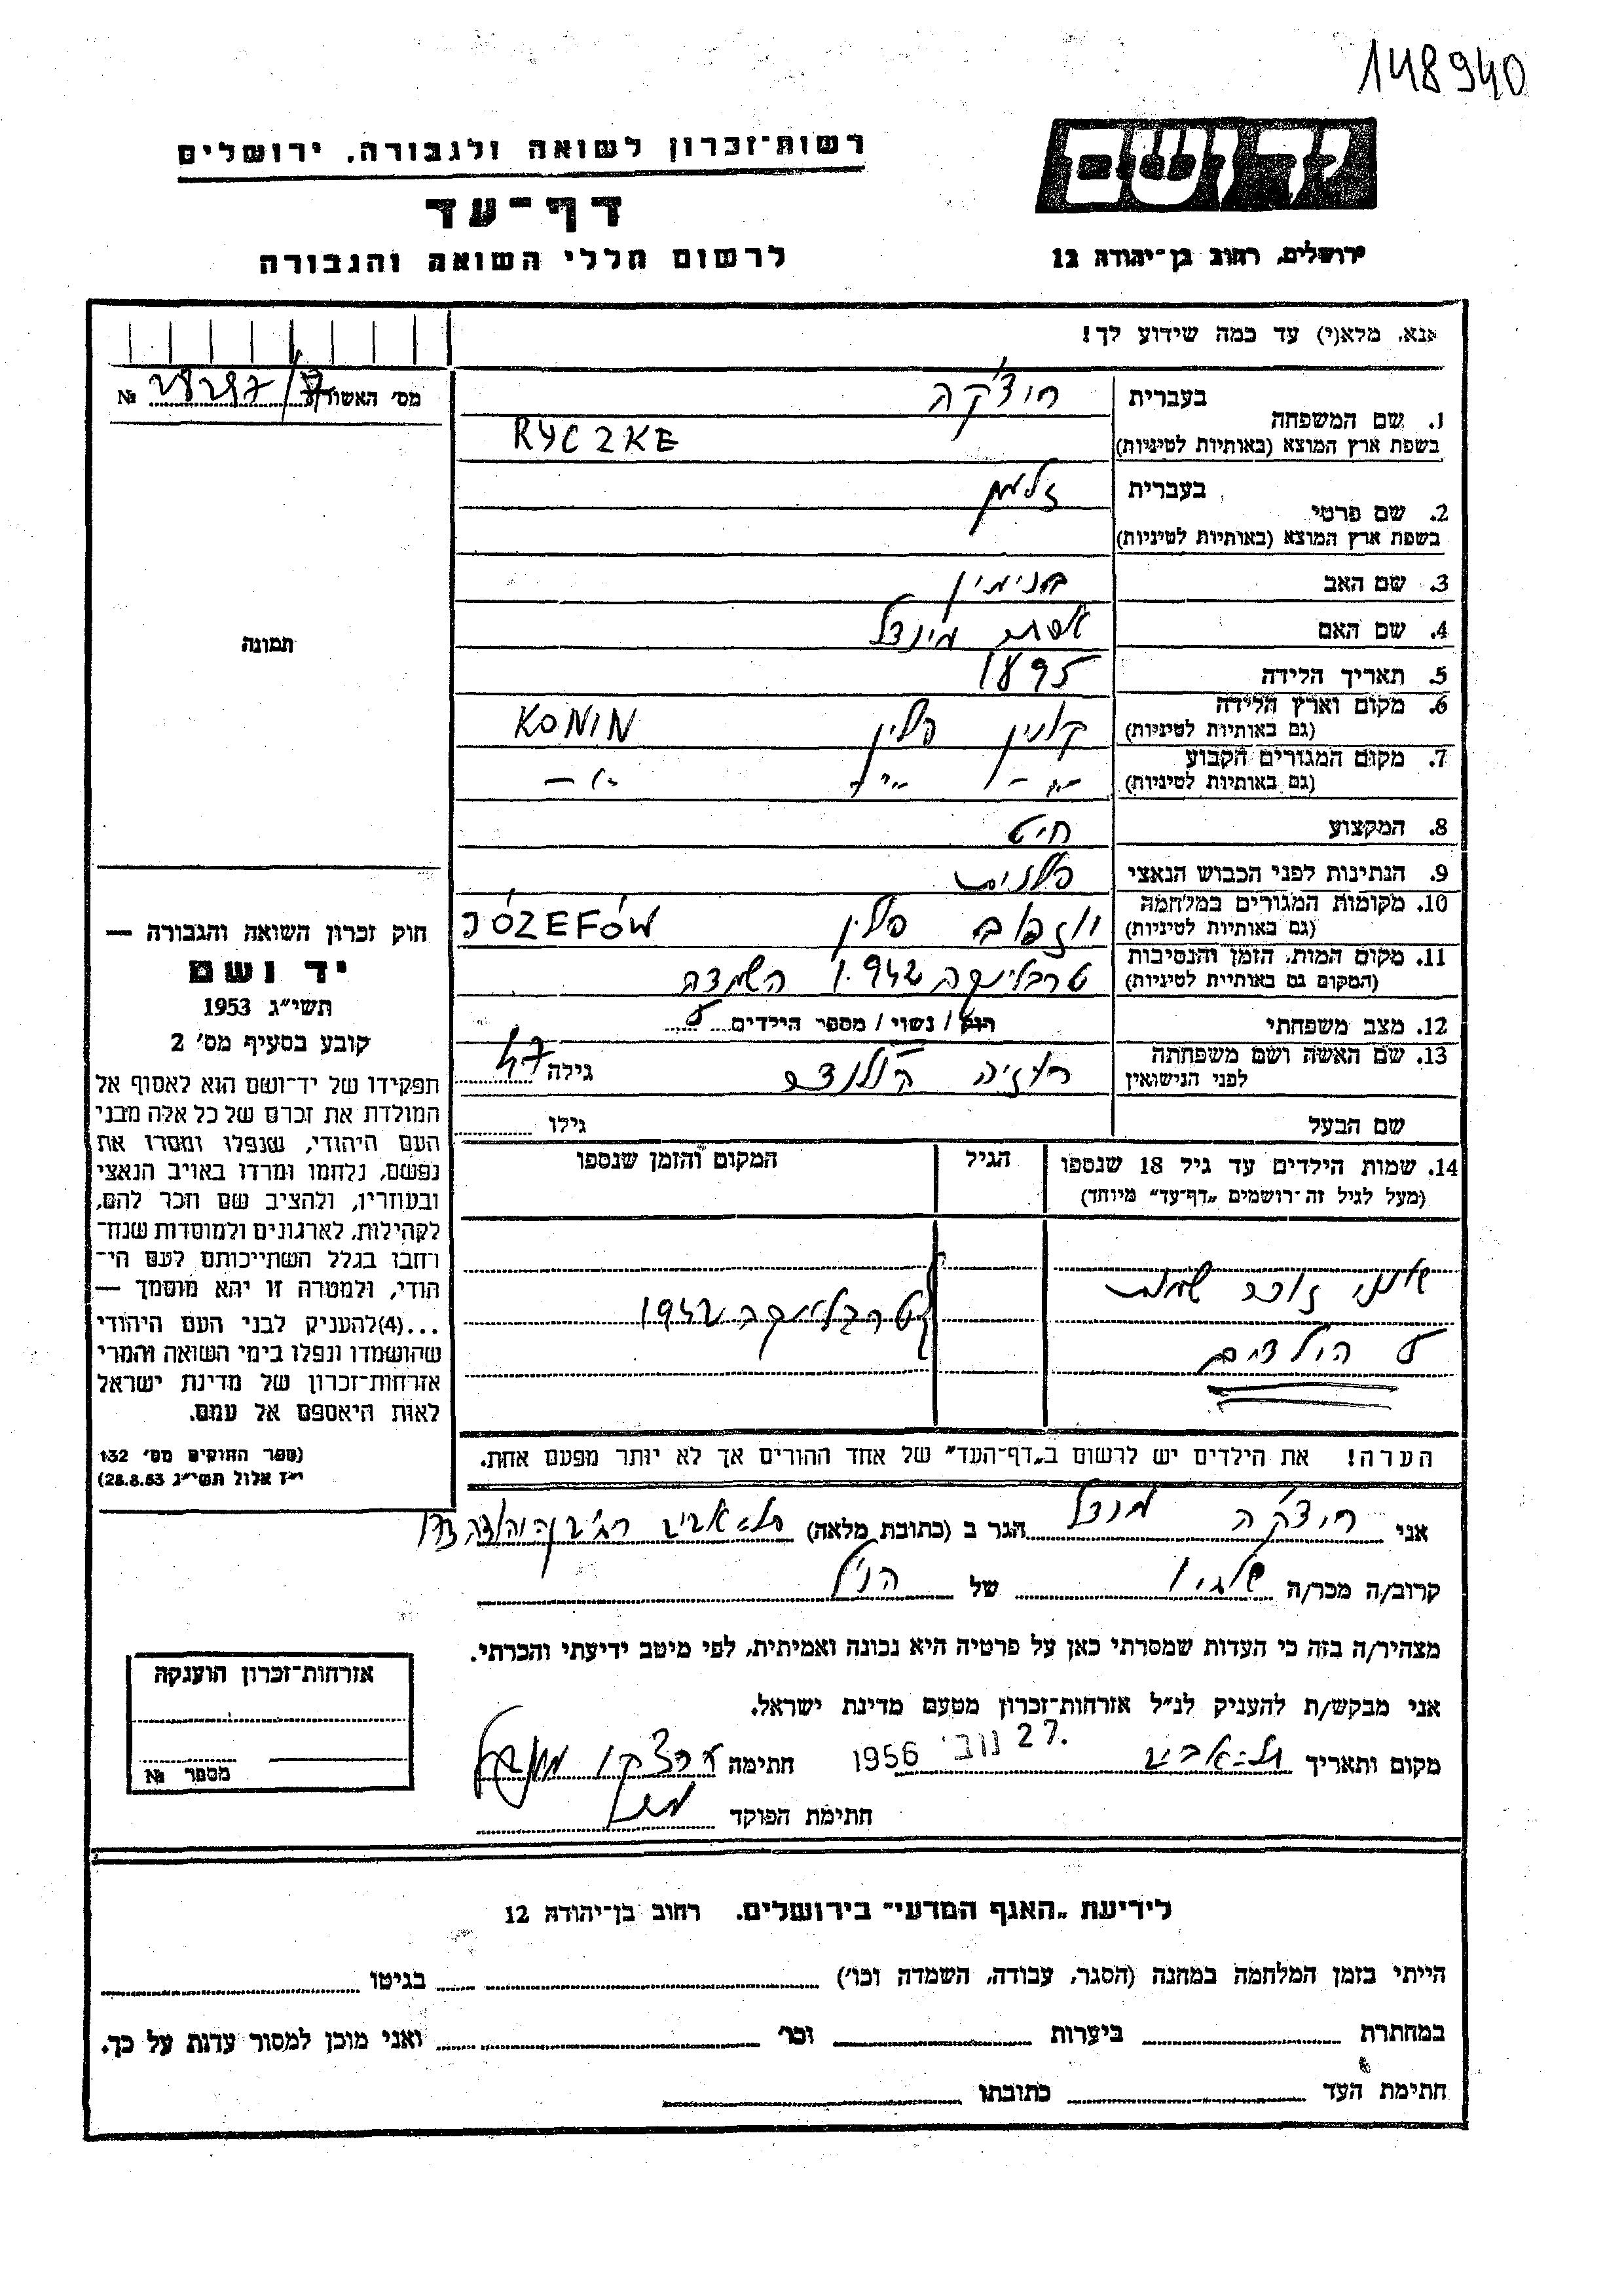 148940
יד ושם
רשות־זכרון לשואה ולגבורה, ירושלים
דף־עד
לרשום חללי השואה והגבורה
ירושלים, רחוב בן־יהודה 12
אנא, מלא(י) עד כמה שידוע לך!
מס' האשור № 28297/
1. שם המשפחה
בעברית ריצ'קה
בשפת ארץ המוצא (באותיות לטיניות) RYCZKE
2. שם פרטי
בעברית זלמן
בשפת ארץ המוצא (באותיות לטיניות)
3. שם האב בנימין
4. שם האם אסתר מינדל
5. תאריך הלידה 1895
6. מקום וארץ הלידה (גם באותיות לטיניות) קונין פולין KONIN
7. מקום המגורים הקבוע (גם באותיות לטיניות) - " - - " - - " -
8. המקצוע חייט
9. הנתינות לפני הכבוש הנאצי פולנית
10. מקומות המגורים במלחמה (גם באותיות לטיניות) יוזפוב פולין JÓZEFÓW
11. מקום המות, הזמן והנסיבות (המקום גם באותיית לטיניות) טרבלינקה 1942 השמדה
12. מצב משפחתי רוק / נשוי / מספר הילדים 5
13. שם האשה ושם משפחתה לפני הנישואין רוזה גילה 47
שם הבעל גילו
14. שמות הילדים עד גיל 18 שנספו
(מעל לגיל זה־רושמים „דף־עד" מיוחד)
הגיל
המקום והזמן שנספו
אינני זוכר שמות
5 הילדים
טרבלינקה 1942
הערה! את הילדים יש לרשום ב„דף־העד" של אחד ההורים אך לא יותר מפעם אחת.
תמונה
חוק זכרון השואה והגבורה —
יד ושם
תשי"ג 1953
קובע בסעיף מס' 2
תפקידו של יד־ושם הוא לאסוף אל
המולדת את זכרם של כל אלה מבני
העם היהודי, שנפלו ומסרו את
נפשם, נלחמו ומרדו באויב הנאצי
ובעוזריו, ולהציב שם וזכר להם,
לקהילות, לארגונים ולמוסדות שנח־
רחבו בגלל השתייכותם לעם הי־
הודי, ולמטרה זו יהא מוסמך —
...(4)להעניק לבני העם היהודי
שהושמדו ונפלו בימי השואה והמרי
אזרחות־זכרון של מדינת ישראל
לאות היאספם אל עמם.
(ספר החוקים מס' 132
י"ז אלול תשי"ג 28.8.53)
אני ריצ'קה מנדל הגר ב (כתובת מלאה) תל־אביב
קרוב/ה מכר/ה של הנ"ל
מצהיר/ה בזה כי העדות שמסרתי כאן על פרטיה היא נכונה ואמיתית, לפי מיטב ידיעתי והכרתי.
אני מבקש/ת להעניק לנ"ל אזרחות־זכרון מטעם מדינת ישראל.
מקום ותאריך תל־אביב 27. נוב' 1956 חתימה
חתימת הפוקד
אזרחות־זכרון הוענקה
מספר №
לידיעת „האגף המדעי" בירושלים, רחוב בן־יהודה 12
הייתי בזמן המלחמה במחנה (הסגר, עבודה, השמדה וכו') בגיטו
במחתרת ביערות וכו' ואני מוכן למסור עדות על כך.
חתימת העד כתובתו